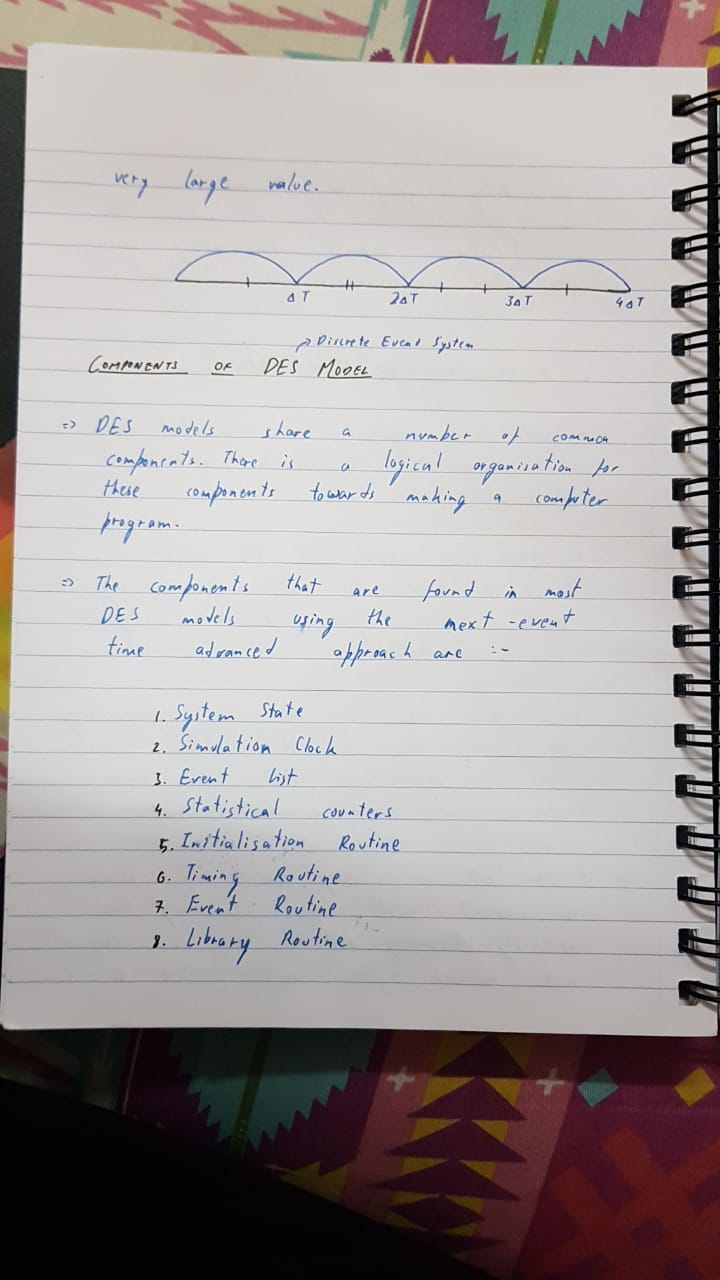 very large value.
ΔT 2ΔT 3ΔT 4ΔT
→ Discrete Event System
COMPONENTS OF DES MODEL
=> DES models share a number of common
components. There is a logical organisation for
these components towards making a computer
program.
=> The components that are found in most
DES models using the next-event
time advanced approach are :-
1. System State
2. Simulation Clock
3. Event List
4. Statistical counters
5. Initialisation Routine
6. Timing Routine
7. Event Routine
8. Library Routine